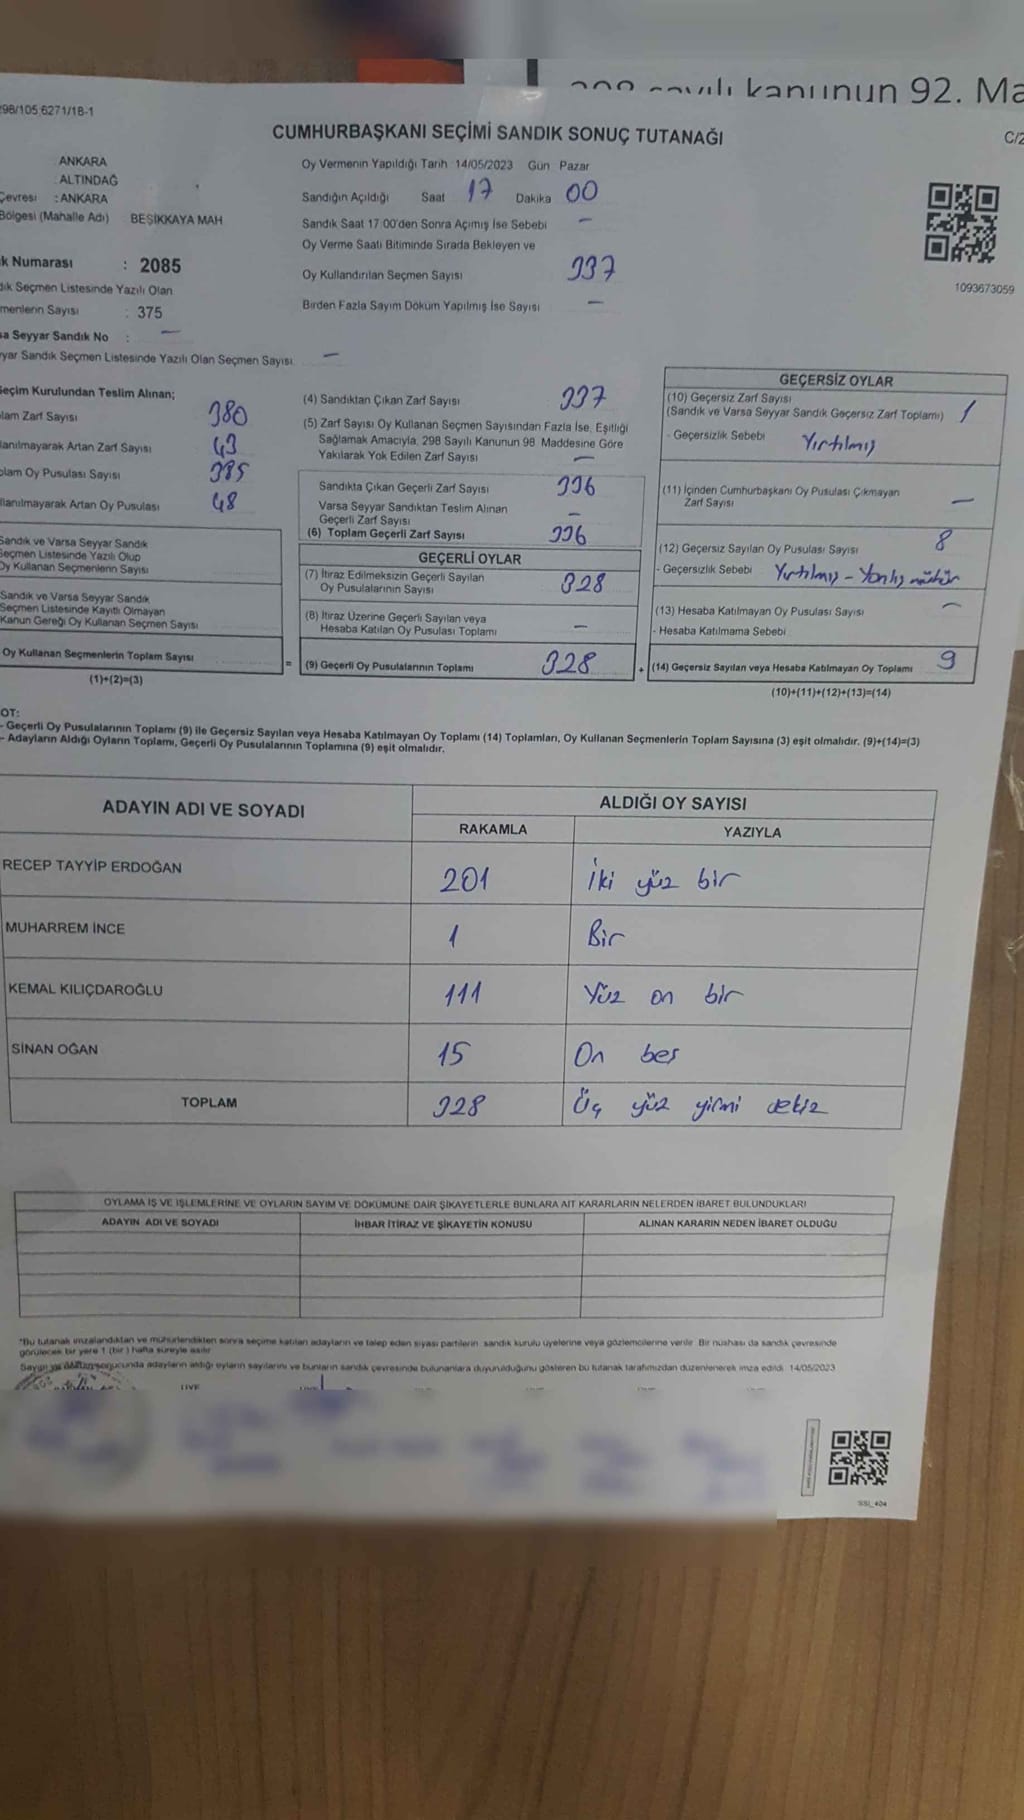 298 sayılı kanunun 92. Ma
298/105 6271/18-1
CUMHURBAŞKANI SEÇİMİ SANDIK SONUÇ TUTANAĞI
C/2
: ANKARA
: ALTINDAĞ
Çevresi : ANKARA
Bölgesi (Mahalle Adı) BEŞİKKAYA MAH
k Numarası : 2085
dık Seçmen Listesinde Yazılı Olan
menlerin Sayısı : 375
sa Seyyar Sandık No : —
yyar Sandık Seçmen Listesinde Yazılı Olan Seçmen Sayısı —
Oy Vermenin Yapıldığı Tarih 14/05/2023 Gün Pazar
Sandığın Açıldığı Saat 17 Dakika 00
Sandık Saat 17:00'den Sonra Açımış İse Sebebi —
Oy Verme Saati Bitiminde Sırada Bekleyen ve
Oy Kullandırılan Seçmen Sayısı 337
Birden Fazla Sayım Döküm Yapılmış İse Sayısı —
1093673059
Seçim Kurulundan Teslim Alınan;
lam Zarf Sayısı 380
lanılmayarak Artan Zarf Sayısı 43
plam Oy Pusulası Sayısı 385
llanılmayarak Artan Oy Pusulası 48
Sandık ve Varsa Seyyar Sandık
Seçmen Listesinde Yazılı Olup
Oy Kullanan Seçmenlerin Sayısı
Sandık ve Varsa Seyyar Sandık
Seçmen Listesinde Kayıtlı Olmayan
Kanun Gereği Oy Kullanan Seçmen Sayısı
Oy Kullanan Seçmenlerin Toplam Sayısı
(1)+(2)=(3)
=
(4) Sandıktan Çıkan Zarf Sayısı 337
(5) Zarf Sayısı Oy Kullanan Seçmen Sayısından Fazla İse, Eşitliği
Sağlamak Amacıyla, 298 Sayılı Kanunun 98. Maddesine Göre
Yakılarak Yok Edilen Zarf Sayısı —
Sandıkta Çıkan Geçerli Zarf Sayısı 336
Varsa Seyyar Sandıktan Teslim Alınan
Geçerli Zarf Sayısı —
(6) Toplam Geçerli Zarf Sayısı 336
GEÇERLİ OYLAR
(7) İtiraz Edilmeksizin Geçerli Sayılan
Oy Pusulalarının Sayısı 328
(8) İtiraz Üzerine Geçerli Sayılan veya
Hesaba Katılan Oy Pusulası Toplamı —
(9) Geçerli Oy Pusulalarının Toplamı 328
+
GEÇERSİZ OYLAR
(10) Geçersiz Zarf Sayısı
(Sandık ve Varsa Seyyar Sandık Geçersiz Zarf Toplamı) 1
- Geçersizlik Sebebi Yırtılmış
(11) İçinden Cumhurbaşkanı Oy Pusulası Çıkmayan
Zarf Sayısı —
(12) Geçersiz Sayılan Oy Pusulası Sayısı 8
- Geçersizlik Sebebi Yırtılmış - Yanlış mühür
(13) Hesaba Katılmayan Oy Pusulası Sayısı —
- Hesaba Katılmama Sebebi
(14) Geçersiz Sayılan veya Hesaba Katılmayan Oy Toplamı 9
(10)+(11)+(12)+(13)=(14)
OT:
- Geçerli Oy Pusulalarının Toplamı (9) ile Geçersiz Sayılan veya Hesaba Katılmayan Oy Toplamı (14) Toplamları, Oy Kullanan Seçmenlerin Toplam Sayısına (3) eşit olmalıdır. (9)+(14)=(3)
- Adayların Aldığı Oyların Toplamı, Geçerli Oy Pusulalarının Toplamına (9) eşit olmalıdır.
ADAYIN ADI VE SOYADI
ALDIĞI OY SAYISI
RAKAMLA YAZIYLA
RECEP TAYYİP ERDOĞAN 201 İki yüz bir
MUHARREM İNCE 1 Bir
KEMAL KILIÇDAROĞLU 111 Yüz on bir
SİNAN OĞAN 15 On beş
TOPLAM 328 Üç yüz yirmi sekiz
OYLAMA İŞ VE İŞLEMLERİNE VE OYLARIN SAYIM VE DÖKÜMÜNE DAİR ŞİKAYETLERLE BUNLARA AİT KARARLARIN NELERDEN İBARET BULUNDUKLARI
ADAYIN ADI VE SOYADI İHBAR İTİRAZ VE ŞİKAYETİN KONUSU ALINAN KARARIN NEDEN İBARET OLDUĞU
*Bu tutanak imzalandıktan ve mühürlendikten sonra seçime katılan adayların ve talep eden siyasi partilerin sandık kurulu üyelerine veya gözlemcilerine verilir. Bir nüshası da sandık çevresinde
görülecek bir yere 1 (bir) hafta süreyle asılır
Sayım ve döküm sonucunda adayların aldığı oyların sayılarını ve bunların sandık çevresinde bulunanlara duyurulduğunu gösteren bu tutanak tarafımızdan düzenlenerek imza edildi. 14/05/2023
SSI_404